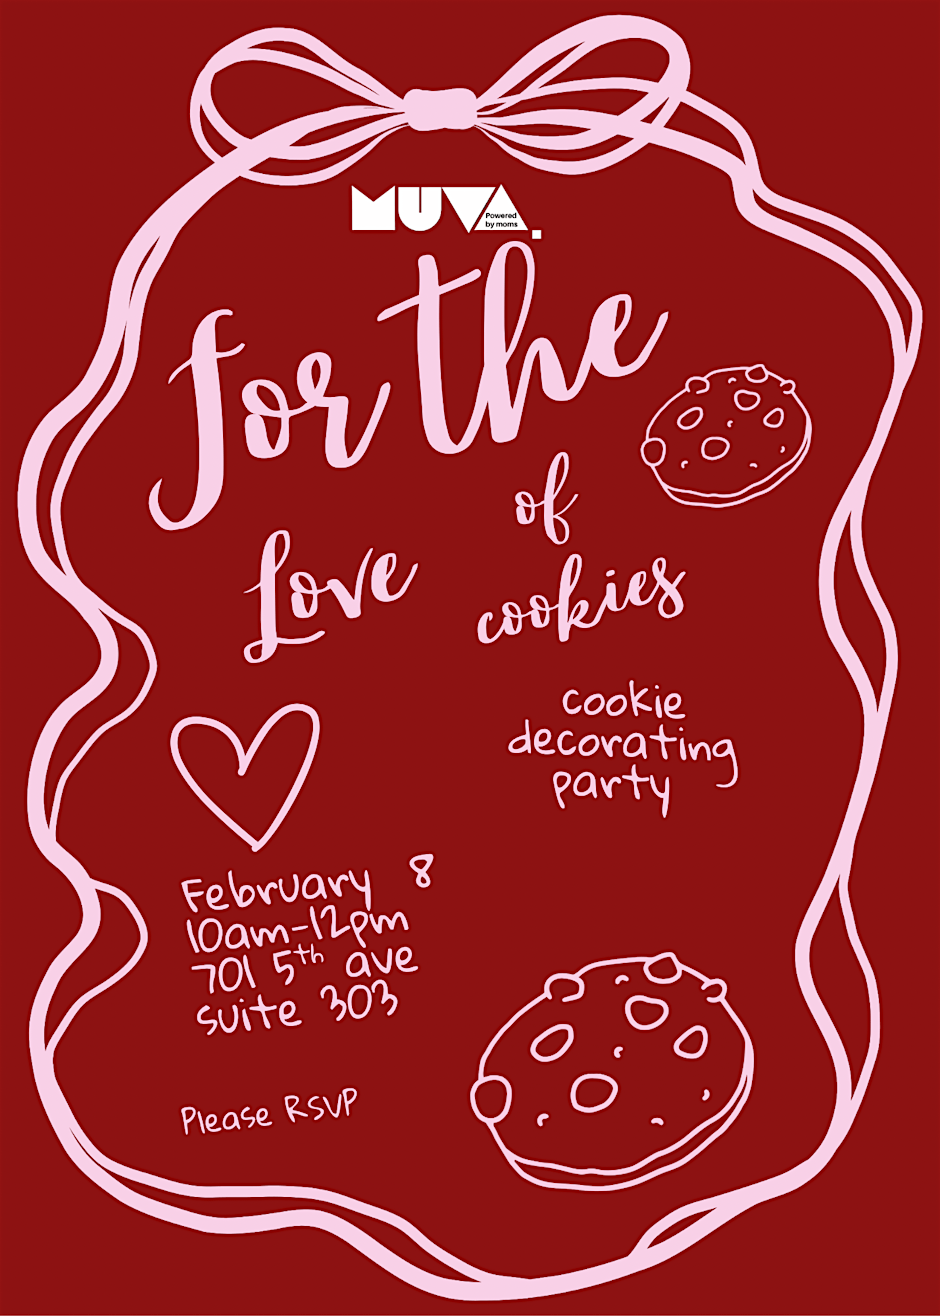 MUVA.
Powered
by moms
For the
Love
of
cookies
cookie
decorating
party
February 8
10am-12pm
701 5th ave
suite 303
Please RSVP